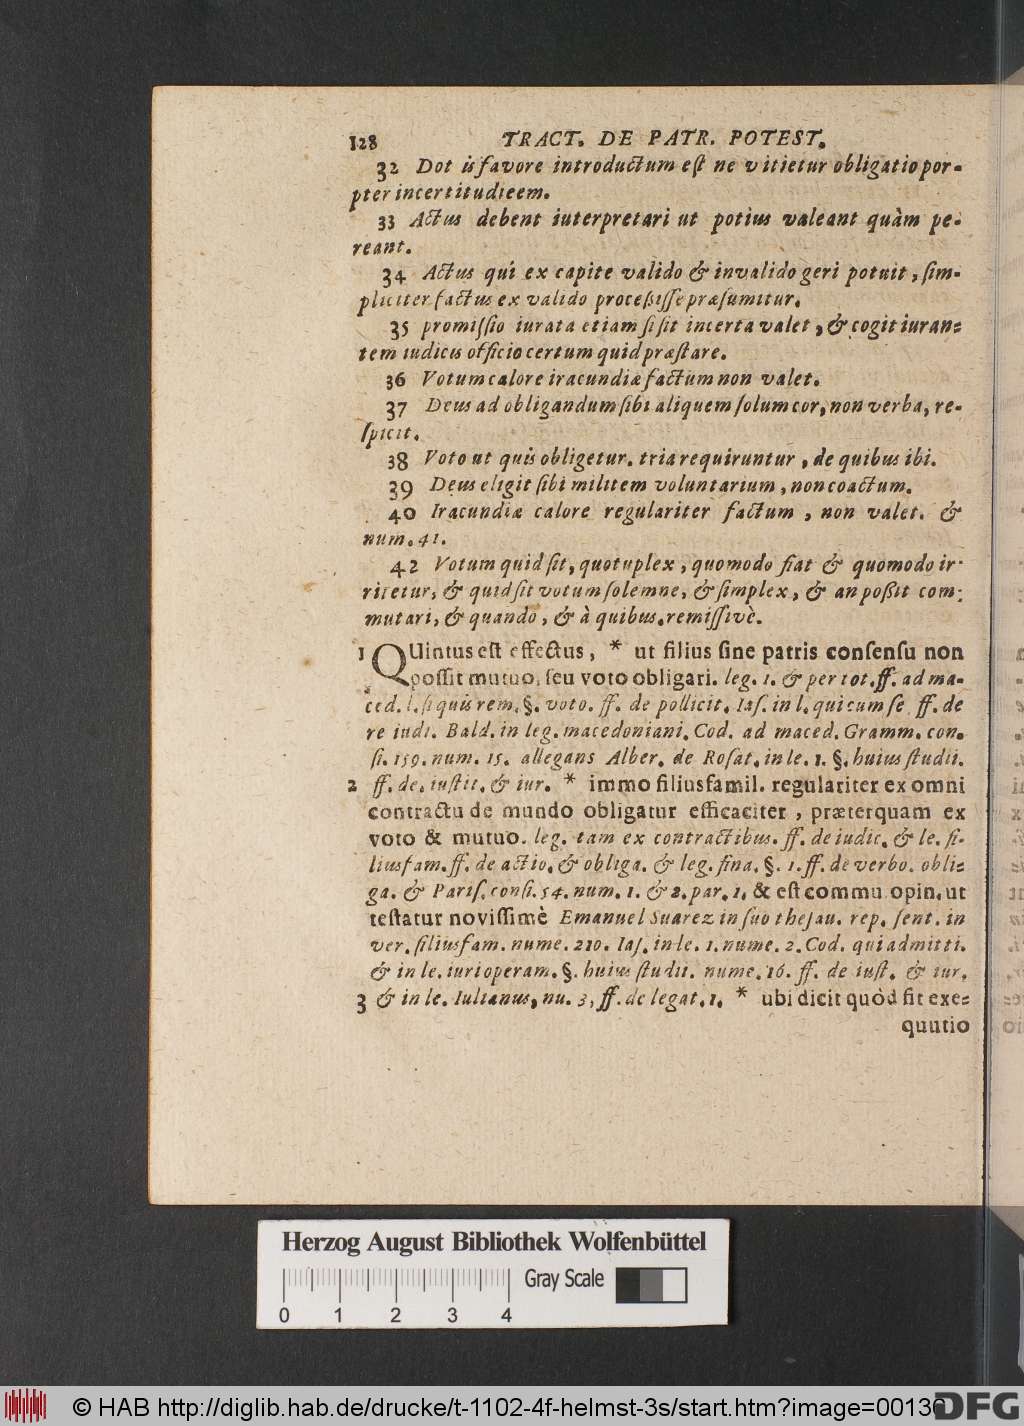 128 TRACT. DE PATR. POTEST.
32 Dot is favore introductum est ne vitietur obligatio por-
pter incertitudieem.
33 Actus debent iuterpretari ut potius valeant quàm pe-
reant.
34 Actus qui ex capite valido & invalido geri potuit, sim-
pliciter factus ex valido processisse præsumitur.
35 promissio iurata etiam si sit incerta valet, & cogit iuran-
tem iudicis officio certum quid præstare.
36 Votum calore iracundiæ factum non valet.
37 Deus ad obligandum sibi aliquem solum cor, non verba, re-
spicit.
38 Voto ut quis obligetur. tria requiruntur, de quibus ibi.
39 Deus eligit sibi militem voluntarium, non coactum.
40 Iracundiæ calore regulariter factum, non valet. &
num. 41.
42 Votum quid sit, quotuplex, quomodo fiat & quomodo ir-
ritetur, & quid sit votum solemne, & simplex, & an possit com-
mutari, & quando, & à quibus. remissivè.
1 QUintus est effectus, * ut filius sine patris consensu non
possit mutuo, seu voto obligari. leg. 1. & per tot. ff. ad ma-
ced. l. si quis rem. §. voto. ff. de pollicit. Ias. in l. qui cum se ff. de
re iudi. Bald. in leg. macedoniani. Cod. ad maced. Gramm. con.
si. 159. num. 15. allegans Alber. de Rosat. in le. 1. §. huius studii.
2 ff. de. iustit. & iur. * immo filiusfamil. regulariter ex omni
contractu de mundo obligatur efficaciter, præterquam ex
voto & mutuo. leg. tam ex contractibus. ff. de iudic. & le. fi-
liusfam. ff. de actio. & obliga. & leg. fina. §. 1. ff. de verbo. obli-
ga. & Paris. consi. 54. num. 1. & 2. par. 1. & est commu. opin. ut
testatur novissimè Emanuel Suarez in suo thesau. rep. sent. in
ver. filiusfam. nume. 210. Ias. in le. 1. nume. 2. Cod. qui admitti.
& in le. iuri operam. §. huius studii. nume. 16. ff. de iust. & iur.
3 & in le. Iulianus, nu. 3, ff. de legat. 1. * ubi dicit quòd fit exe-
quutio
Herzog August Bibliothek Wolfenbüttel
Gray Scale
0 1 2 3 4
© HAB http://diglib.hab.de/drucke/t-1102-4f-helmst-3s/start.htm?image=00130
DFG